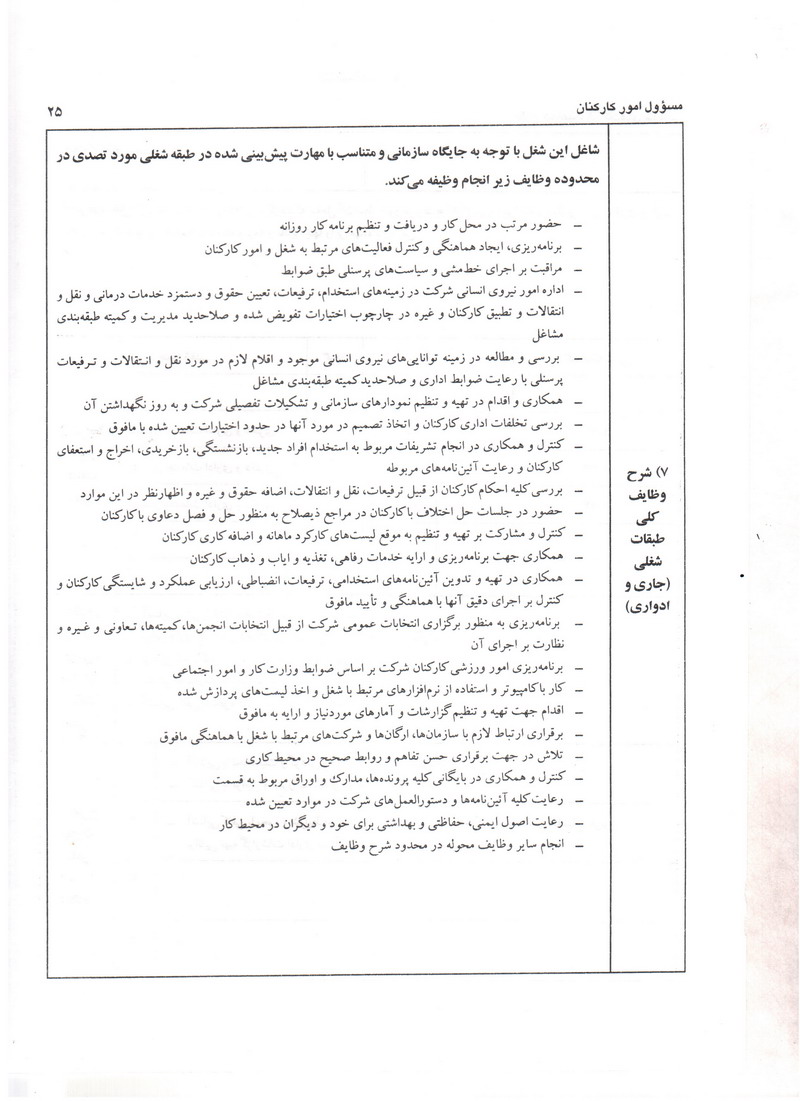 مسؤول امور کارکنان
۲۵
شاغل این شغل با توجه به جایگاه سازمانی و متناسب با مهارت پیش‌بینی شده در طبقه شغلی مورد تصدی در
محدوده وظایف زیر انجام وظیفه می‌کند.
۷) شرح
وظایف
کلی
طبقات
شغلی
(جاری و
ادواری)
– حضور مرتب در محل کار و دریافت و تنظیم برنامه کار روزانه
– برنامه‌ریزی، ایجاد هماهنگی و کنترل فعالیت‌های مرتبط به شغل و امور کارکنان
– مراقبت بر اجرای خط‌مشی و سیاست‌های پرسنلی طبق ضوابط
– اداره امور نیروی انسانی شرکت در زمینه‌های استخدام، ترفیعات، تعیین حقوق و دستمزد خدمات درمانی و نقل و
انتقالات و تطبیق کارکنان و غیره در چارچوب اختیارات تفویض شده و صلاحدید مدیریت و کمیته طبقه‌بندی
مشاغل
– بررسی و مطالعه در زمینه توانایی‌های نیروی انسانی موجود و اقلام لازم در مورد نقل و انـتقالات و تـرفیعات
پرسنلی با رعایت ضوابط اداری و صلاحدید کمیته طبقه‌بندی مشاغل
– همکاری و اقدام در تهیه و تنظیم نمودارهای سازمانی و تشکیلات تفصیلی شرکت و به روز نگهداشتن آن
– بررسی تخلفات اداری کارکنان و اتخاذ تصمیم در مورد آنها در حدود اختیارات تعیین شده با مافوق
– کنترل و همکاری در انجام تشریفات مربوط به استخدام افراد جدید، بازنشستگی، بازخریدی، اخراج و استعفای
کارکنان و رعایت آئین‌نامه‌های مربوطه
– بررسی کلیه احکام کارکنان از قبیل ترفیعات، نقل و انتقالات، اضافه حقوق و غیره و اظهارنظر در این موارد
– حضور در جلسات حل اختلاف با کارکنان در مراجع ذیصلاح به منظور حل و فصل دعاوی با کارکنان
– کنترل و مشارکت بر تهیه و تنظیم به موقع لیست‌های کارکرد ماهانه و اضافه کاری کارکنان
– همکاری جهت برنامه‌ریزی و ارایه خدمات رفاهی، تغذیه و ایاب و ذهاب کارکنان
– همکاری در تهیه و تدوین آئین‌نامه‌های استخدامی، ترفیعات، انضباطی، ارزیابی عملکرد و شایستگی کارکنان و
کنترل بر اجرای دقیق آنها با هماهنگی و تأیید مافوق
– برنامه‌ریزی به منظور برگزاری انتخابات عمومی شرکت از قبیل انتخابات انجمن‌ها، کمیته‌ها، تعـاونی و غـیره و
نظارت بر اجرای آن
– برنامه‌ریزی امور ورزشی کارکنان شرکت بر اساس ضوابط وزارت کار و امور اجتماعی
– کار با کامپیوتر و استفاده از نرم‌افزارهای مرتبط با شغل و اخذ لیست‌های پردازش شده
– اقدام جهت تهیه و تنظیم گزارشات و آمارهای موردنیاز و ارایه به مافوق
– برقراری ارتباط لازم با سازمان‌ها، ارگان‌ها و شرکت‌های مرتبط با شغل با هماهنگی مافوق
– تلاش در جهت برقراری حسن تفاهم و روابط صحیح در محیط کاری
– کنترل و همکاری در بایگانی کلیه پرونده‌ها، مدارک و اوراق مربوط به قسمت
– رعایت کلیه آئین‌نامه‌ها و دستورالعمل‌های شرکت در موارد تعیین شده
– رعایت اصول ایمنی، حفاظتی و بهداشتی برای خود و دیگران در محیط کار
– انجام سایر وظایف محوله در محدود شرح وظایف